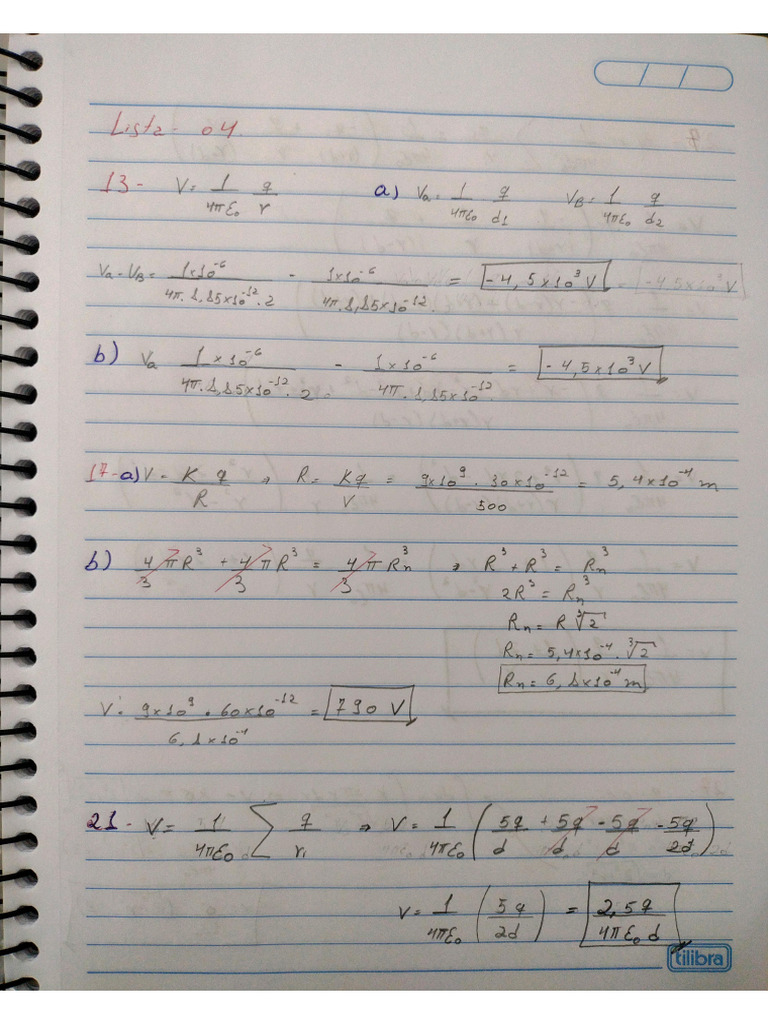 Lista - 04.
13- V = 1/4πε₀ q/r a) Va = 1/4πε₀ q/d1 VB = 1/4πε₀ q/d2
Va - VB = 1x10⁻⁶/4π.8,85x10⁻¹².2 - 1x10⁻⁶/4π.8,85x10⁻¹². = -4,5x10³ V
b) Va 1x10⁻⁶/4π.8,85x10⁻¹².2 - 1x10⁻⁶/4π.8,85x10⁻¹² = -4,5x10³ V
17-a) V = K q/R → R = Kq/V = 9x10⁹ . 30x10⁻¹²/500 = 5,4x10⁻⁴ m
b) 4/3 πR³ + 4/3 πR³ = 4/3 πRn³ → R³ + R³ = Rn³
2R³ = Rn³
Rn = R ∛2
Rn = 5,4x10⁻⁴ . ∛2
Rn = 6,8x10⁻⁴ m
V = 9x10⁹ . 60x10⁻¹²/6,8x10⁻⁴ = 790 V
21- V = 1/4πε₀ Σ q/ri → V = 1/4πε₀ (5q/d + 5q/d - 5q/d - 5q/2d)
V = 1/4πε₀ (5q/2d) = 2,5q/4πε₀ d
tilibra